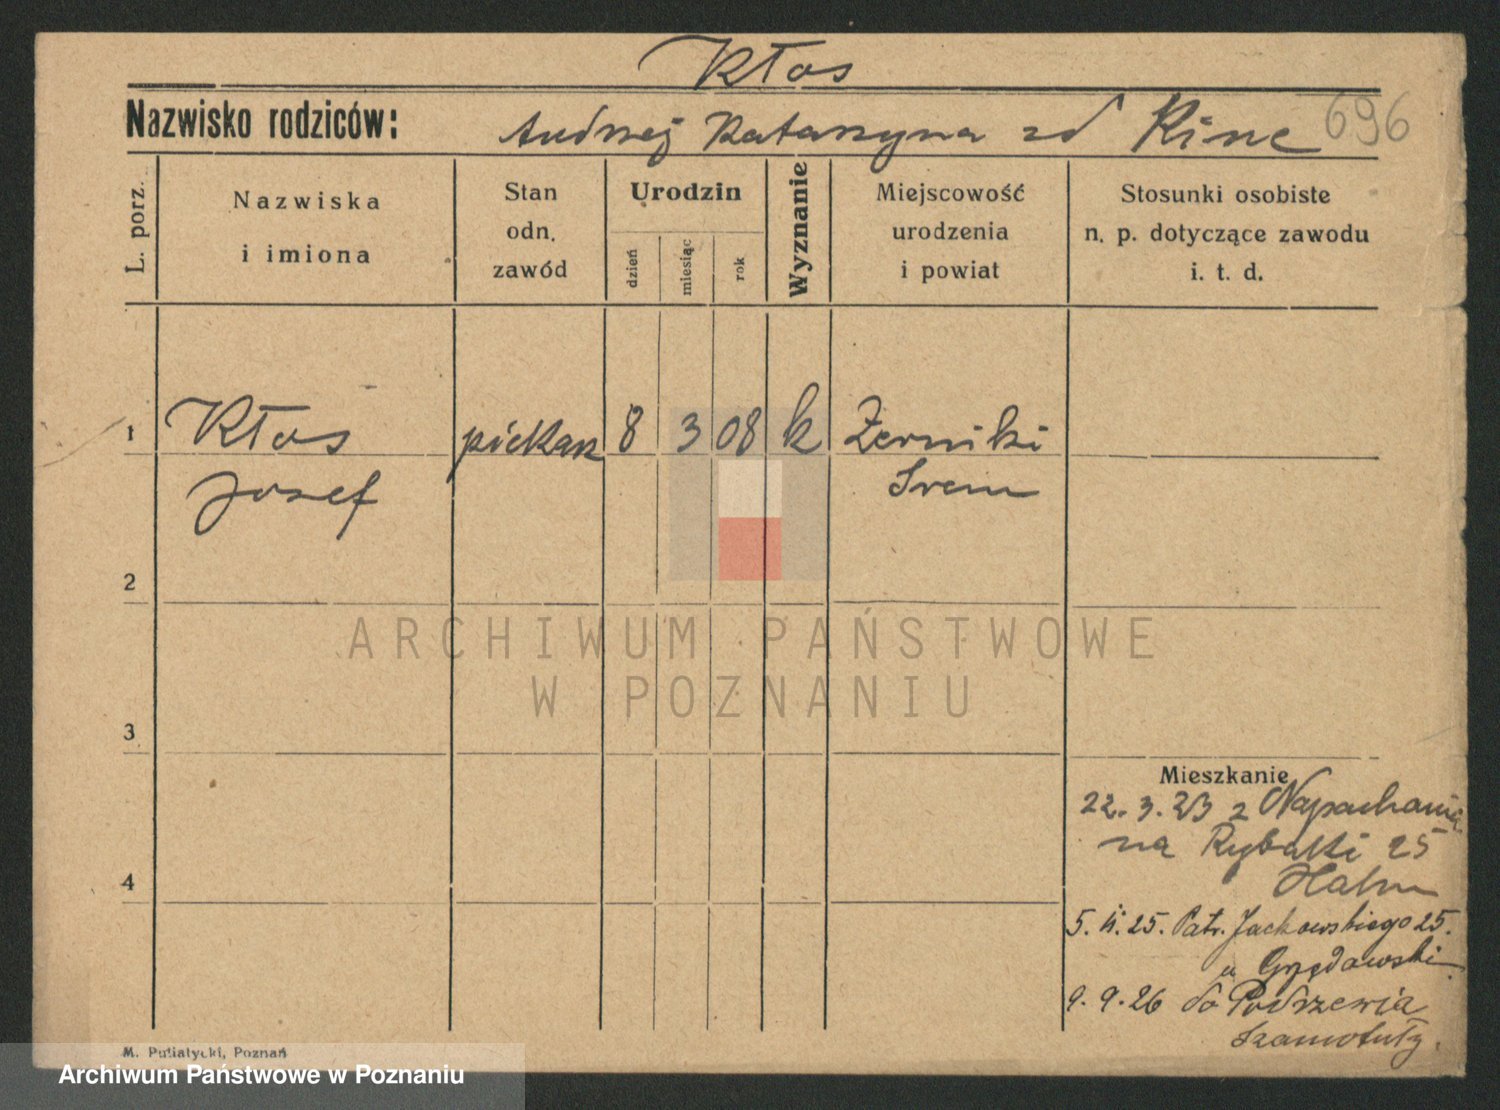 Kłos
Nazwisko rodziców: Andrzej Katarzyna zd Rinc 696
L. porz.
Nazwiska
i imiona
Stan
odn.
zawód
Urodzin
dzień
miesiąc
rok
Wyznanie
Miejscowość
urodzenia
i powiat
Stosunki osobiste
n. p. dotyczące zawodu
i. t. d.
1 Kłos piekarz 8 3 08 k Żerniki
Josef Srem
2
ARCHIWUM PAŃSTWOWE
W POZNANIU
3
Mieszkanie
22.3.23 z Napachania
na Rybaki 25
Hahn
4
5. 11. 25. Patr. Jackowskiego 25.
u Grzędowski
9.9.26 do Podrzewia
Szamotuły.
M. Putiatycki, Poznań
Archiwum Państwowe w Poznaniu